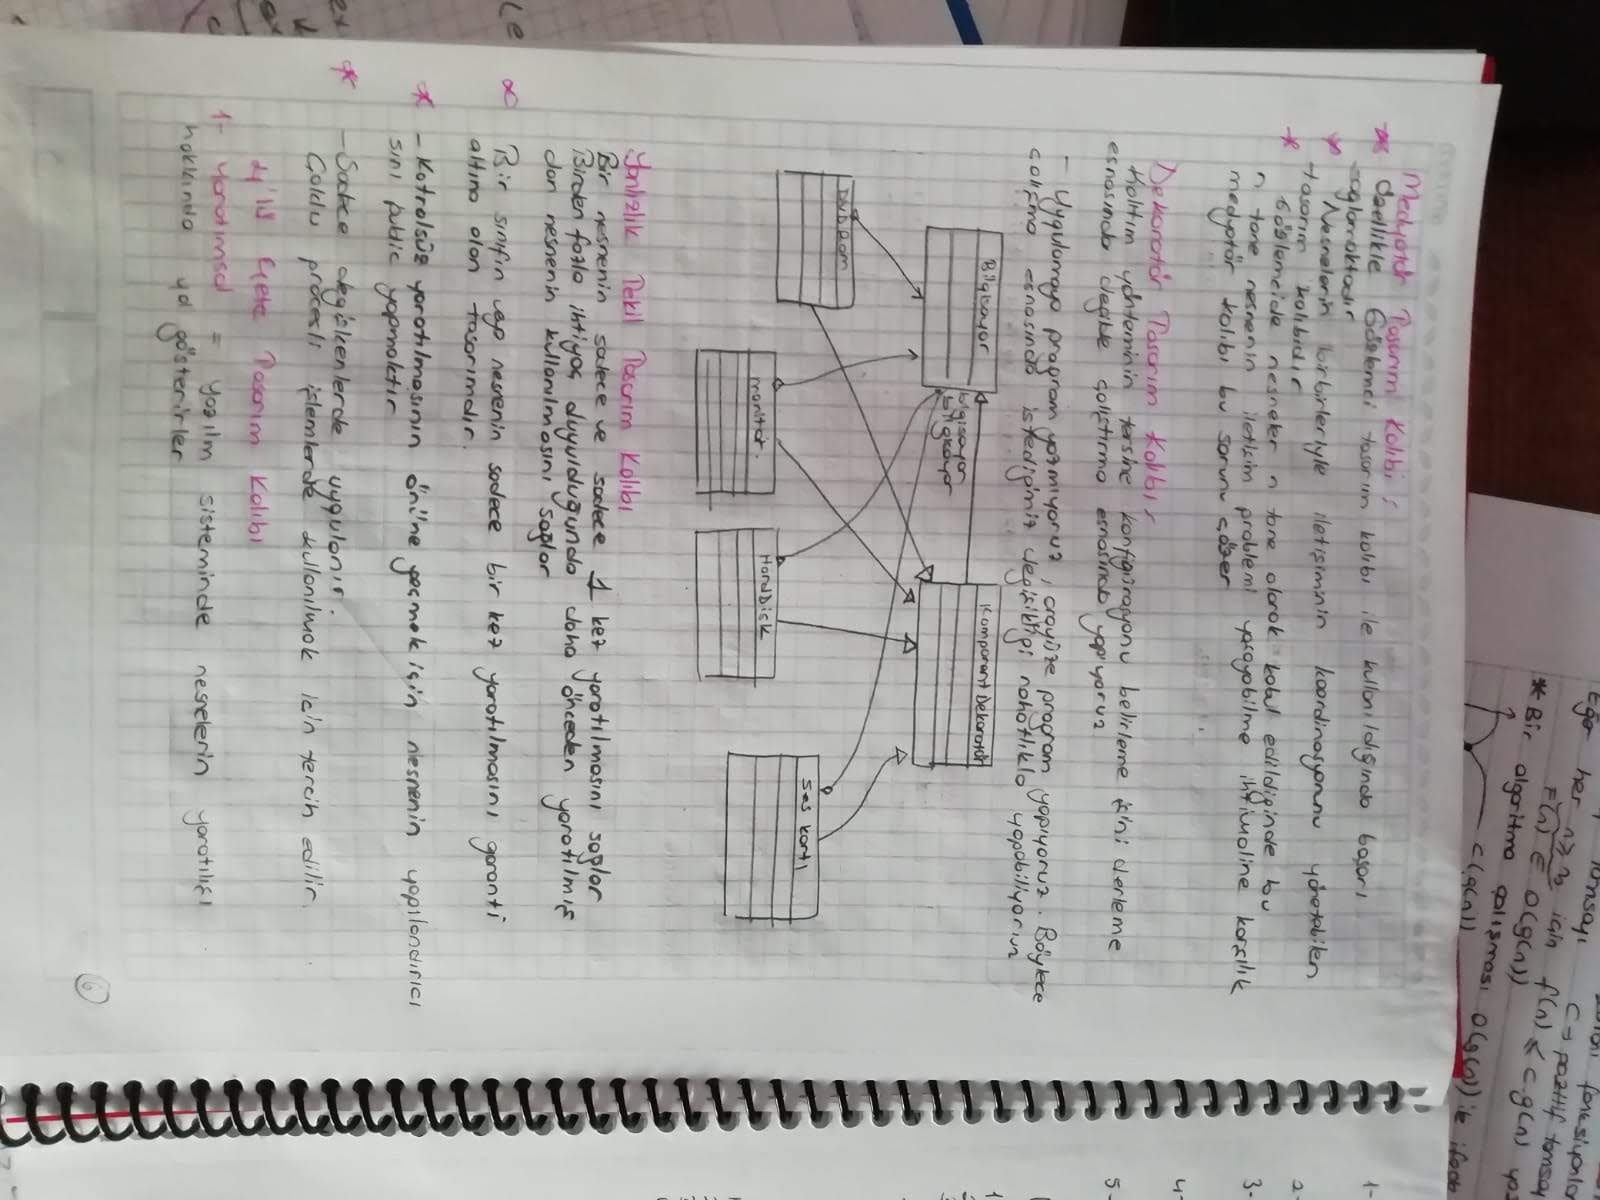 Medyatör Tasarım Kalıbı :
Özellikle Gözlemci tasarım kalıbı ile kullanıldığında başarı
sağlamaktadır
Nesnelerin birbirleriyle iletişiminin koordinasyonunu yönetebilen
tasarım kalıbıdır
Gözlemcide nesneler n tane olarak kabul edildiğinde bu
n tane nesnenin iletişim problemi yaşayabilme ihtimaline karşılık
medyatör kalıbı bu sorunu çözer
Dekoratör Tasarım Kalıbı :
Kalıtım yönteminin tersine konfigürasyonu belirleme işini derleme
esnasında değilde çalıştırma esnasında yapıyoruz
- Uygulamaya program yazmıyoruz, arayüze program yapıyoruz. Böylece
çalışma esnasında istediğimiz değişikliği rahatlıkla yapabiliyoruz
Bilgisayar
bilgisayar
bilgisayar
Komponent Dekoratör
DVDRom
monitör.
HardDisk
Ses kartı
Yanlızlık Tekil Tasarım Kalıbı
Bir nesnenin sadece ve sadece 1 kez yaratılmasını sağlar
Birden fazla ihtiyaç duyulduğunda daha önceden yaratılmış
olan nesnenin kullanılmasını sağlar
Bir sınıfın veya nesnenin sadece bir kez yaratılmasını garanti
altına alan tasarımdır.
- Kotrolsüz yaratılmasının önüne geçmek için nesnenin yapılandırıcı
sını public yapmaktır
- Sadece değişkenlerde uygulanır.
Çoklu procesli işlemlerde kullanılmak için tercih edilir.
4'lü Çete Tasarım Kalıbı
1- Yaratımsal = yazılım sisteminde nesnelerin yaratılışı
hakkında yol gösterirler
6
Eğer her n ≥ için f(n) ≤ c.g(n)
F(n) ∈ O(g(n))
* Bir algoritma çalışması O(g(n)) ile
c(g(n))
c → pozitif tamsayı
1-
2-
3-
4-
5-